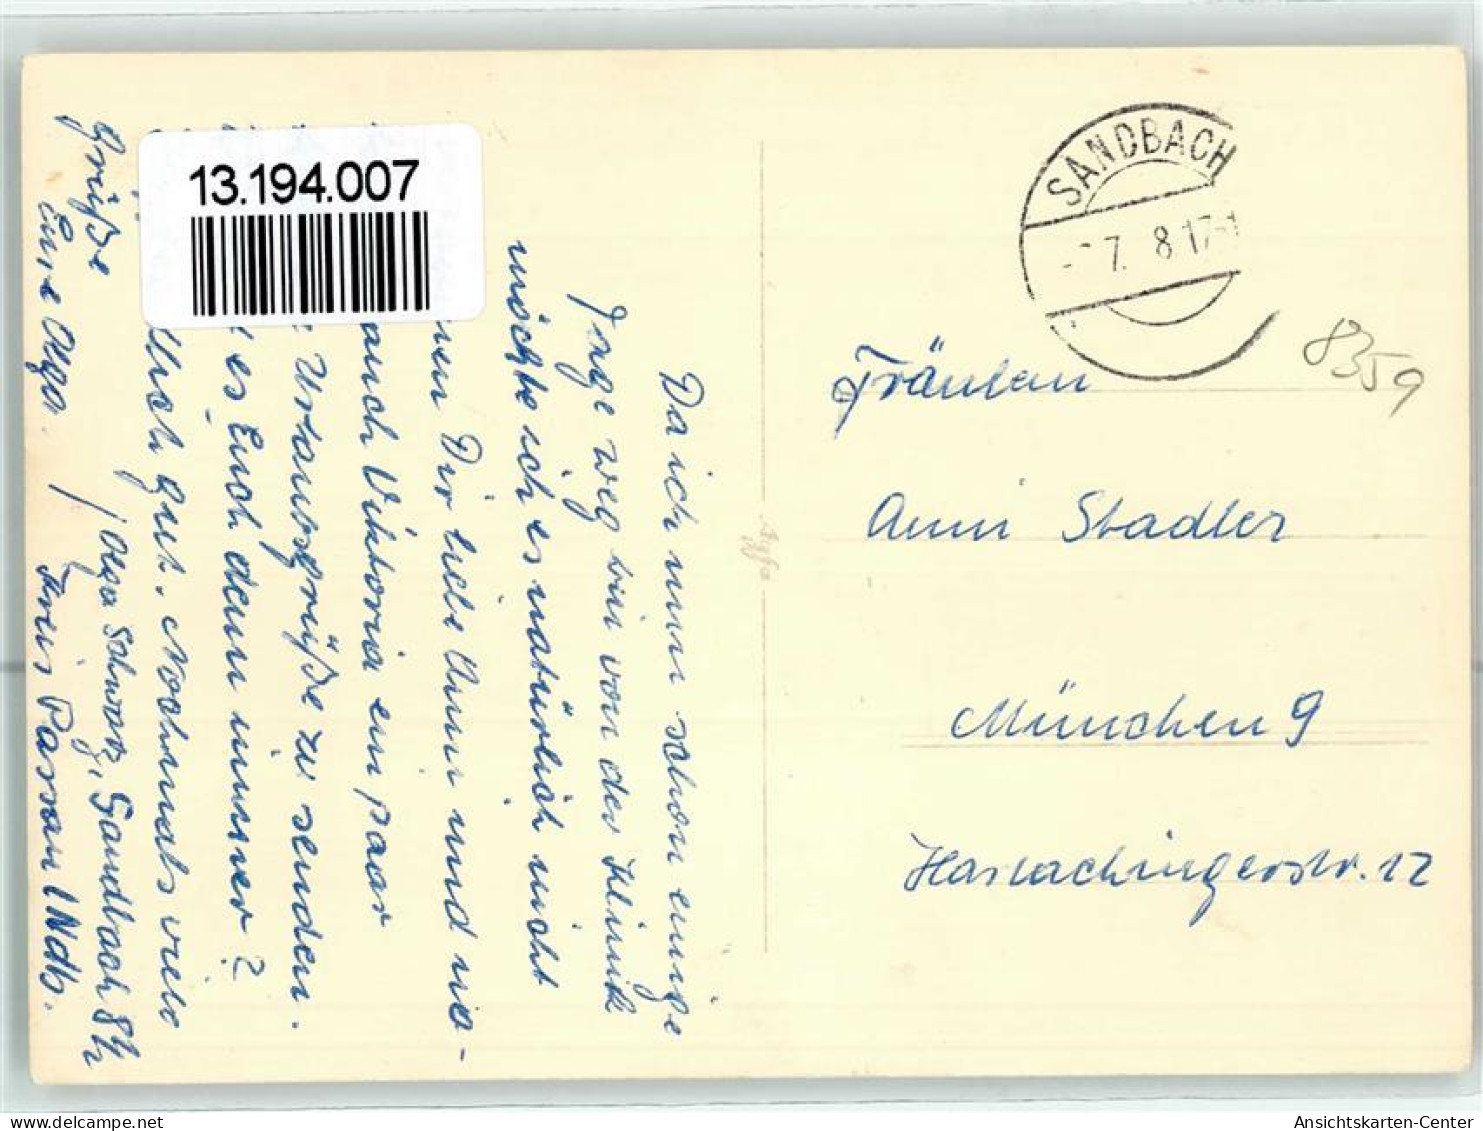 13.194.007
SANDBACH
7. 8. 17
8359
Fräulein
Anni Stadler
München 9
Harlachingerstr. 12
Agfa
Da ich nun schon einige
Tage weg bin von der Klinik
möchte ich es natürlich nicht
Dir liebe Anni und
auch Viktoria ein paar
Urlaubsgrüße zu senden.
es Euch denn immer?
gut. Nochmals viele
Grüße
Eure Olga.
Olga Schwarz, Sandbach 8½
Kreis Passau / Ndb.
Ansichtskarten-Center
delcampe.net